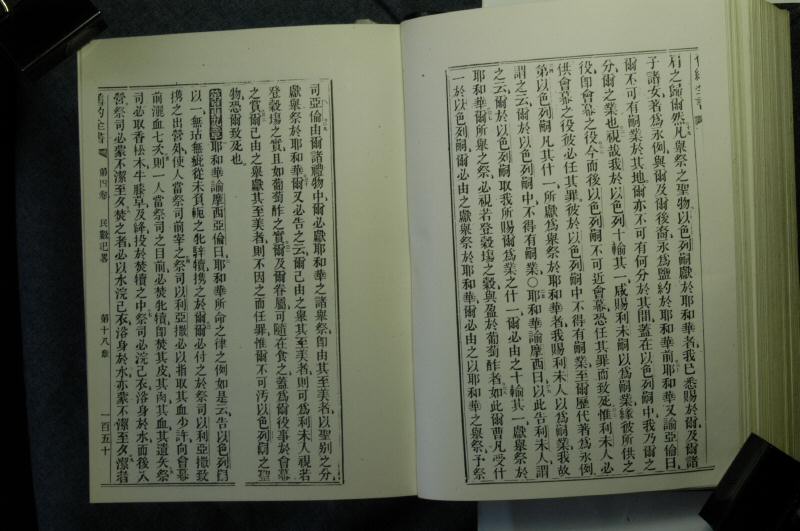 舊約全書
爾之歸爾然凡舉祭之聖物以色列嗣獻於耶和華者我已悉賜於爾及爾諸
子諸女著為永例與爾及爾後裔永為鹽約於耶和華前耶和華又諭亞倫曰
爾不可有嗣業於其地爾亦不可有何分於其間蓋在以色列嗣中我乃爾之
分爾之業也視哉我於以色列十輸其一咸賜利未嗣以為嗣業緣彼所供之
役即會幕之役今而後以色列嗣不可近會幕恐任其罪而致死惟利未人必
供會幕之役彼必任其罪彼於以色列嗣中不得有嗣業至爾歷代著為永例
第以色列嗣凡其什一所獻為舉祭於耶和華者我賜利未人以為嗣業我故
謂之云爾於以色列嗣中不得有嗣業○耶和華諭摩西曰以此告利未人謂
之云爾於以色列嗣取我所賜爾為業之什一爾必由之十輸其一獻舉祭於
耶和華爾所舉之祭必視若登穀塲之穀與盈於葡萄醡者如此爾曹凡受什
一於以色列嗣爾必由之獻舉祭於耶和華爾必由之以耶和華之舉祭予祭
司亞倫由爾諸禮物中爾必獻耶和華之諸舉祭即由其至美者以聖別之分
獻舉祭於耶和華爾又必告之云爾己由之舉其至美者則可為利未人視若
登穀塲之實且如葡萄醡之實爾及爾眷屬可隨在食之蓋為爾役事於會幕
之賞爾己由之舉獻其至美者則不因之而任罪惟爾不可汚以色列嗣之聖
物恐爾致死也
耶和華諭摩西亞倫曰耶和華所命之律之例如是云告以色列嗣
以一無玷無疵從未負軛之牝牸犢携之於爾爾必付之於祭司以利亞撒致
携之出營外使人當祭司前宰之祭司以利亞撒必以指取其血少許向會幕
前灑血七次則一人當祭司之目前必焚牝犢即焚其皮其肉其血其遺矢祭
司必取香松木牛膝草及絳投於焚犢之中祭司必浣己衣洛身於水而後入
營祭司必蒙不潔至夕焚之者必以水浣己衣洛身於水亦蒙不潔至夕潔者
舊約全書 第四卷 民數記畧 第十八章 一百五十